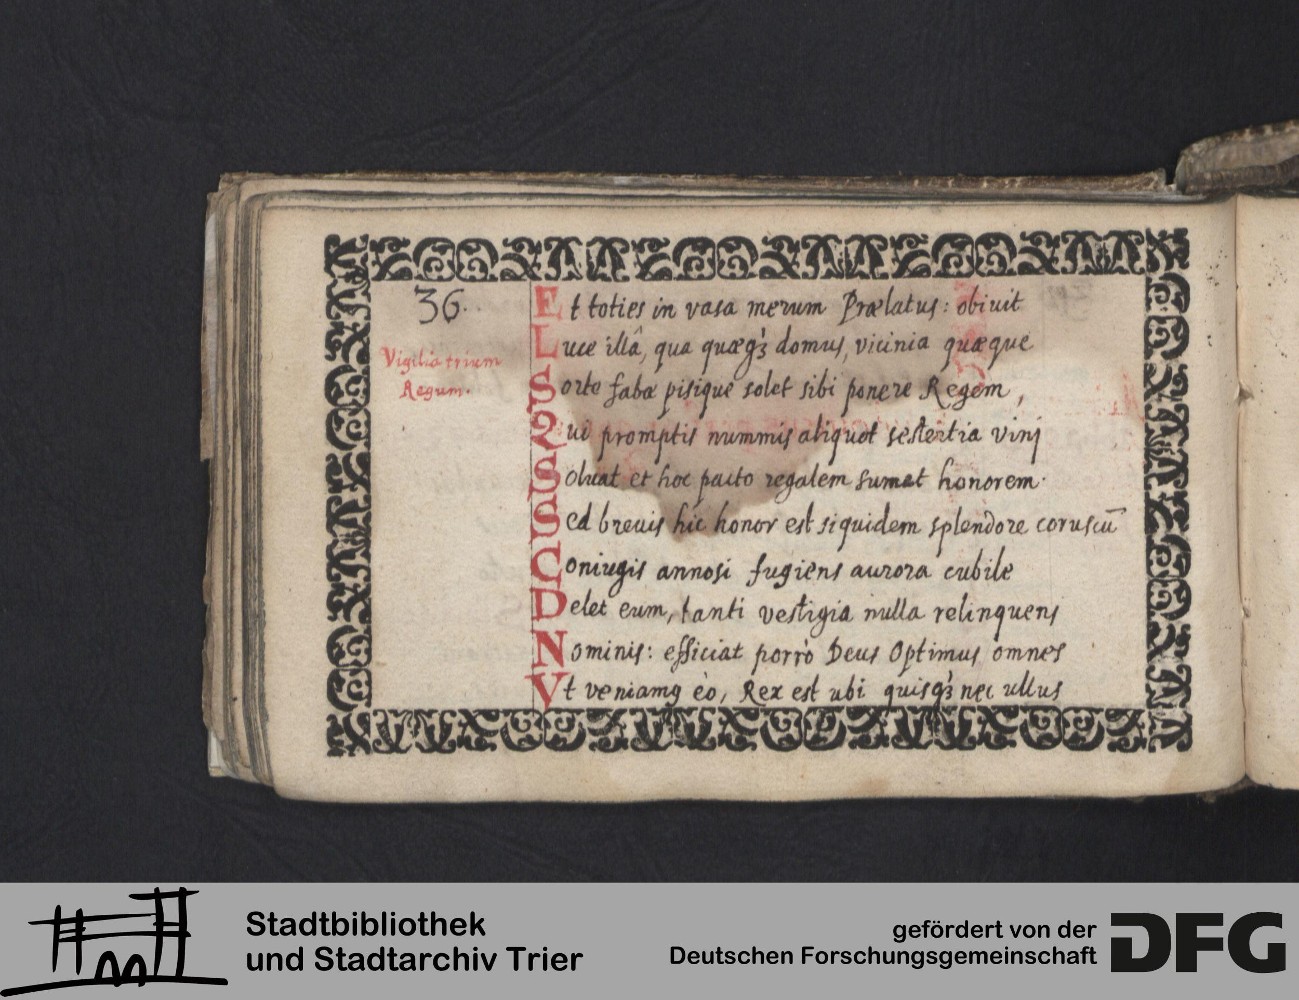 36.
Vigilia trium
Regum.
Et toties in vasa merum Prælatus: obiuit
Luce illâ, qua quæqꝫ domus, vicinia quæque
Sorte fabæ pisique solet sibi ponere Regem,
Qui promptis nummis aliquot sestertia vinj
Soluat et hoc pacto regalem sumat honorem.
Sed breuis hic honor est siquidem splendore coruscū
Coniugis annosi fugiens aurora cubile
Delet eum, tanti vestigia nulla relinquens
Nominis: efficiat porrò Deus Optimus omnes
Vt veniamꝯ eò, Rex est ubi quisqꝫ nec ullus
Stadtbibliothek
und Stadtarchiv Trier
gefördert von der
Deutschen Forschungsgemeinschaft
DFG